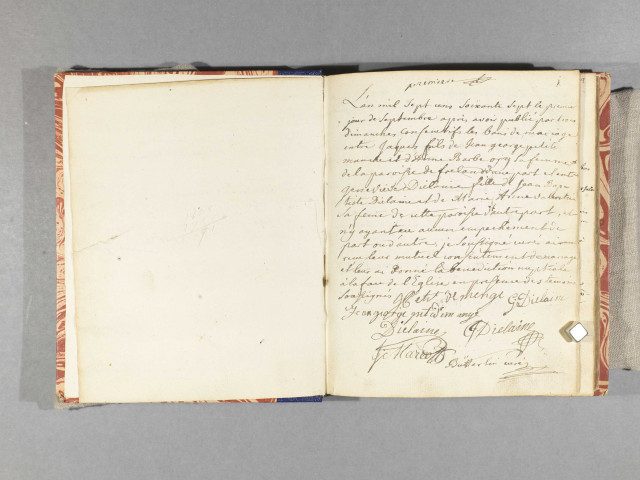 premiere 1
L'an mil sept cens soixante sept le premier
jour de Septembre après avoir publié par trois
dimanches consecutifs les bans de mariage
entre Jaques fils de Jean george petit de
mange et d'Anne Barbe sa femme
de la paroisse de d'une part et entre
Genevieve Dielaine fille de Jean Bap
tiste Dielaine et de Marie Anne
sa feme de cette paroisse d'autre part, et
n'y ayant eu aucun empechement de
part ou d'autre, je soussigné curé ai
reçu leur mutuel consentement de mariage
et leur ai donné la benediction nuptiale
à la face de l'Eglise en presence des temoins
soussignés Petit Demenge G Dielaine
Jean george petit de mange
Dielaine G Dielaine
curé